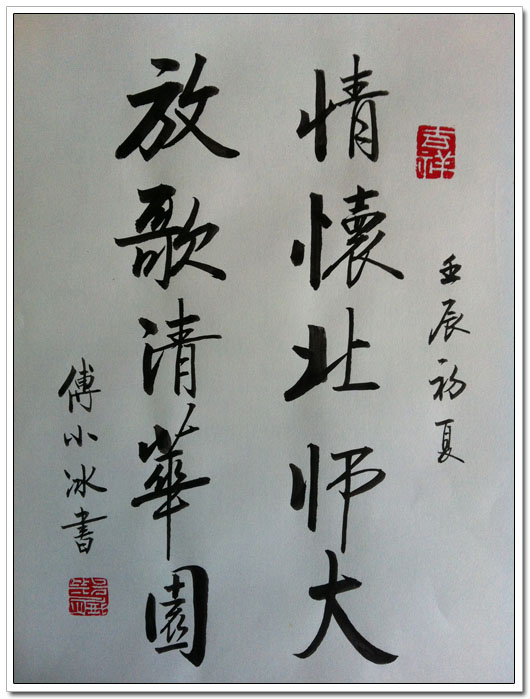 壬辰初夏
情懷北师大
放歌清華園
傅小冰書